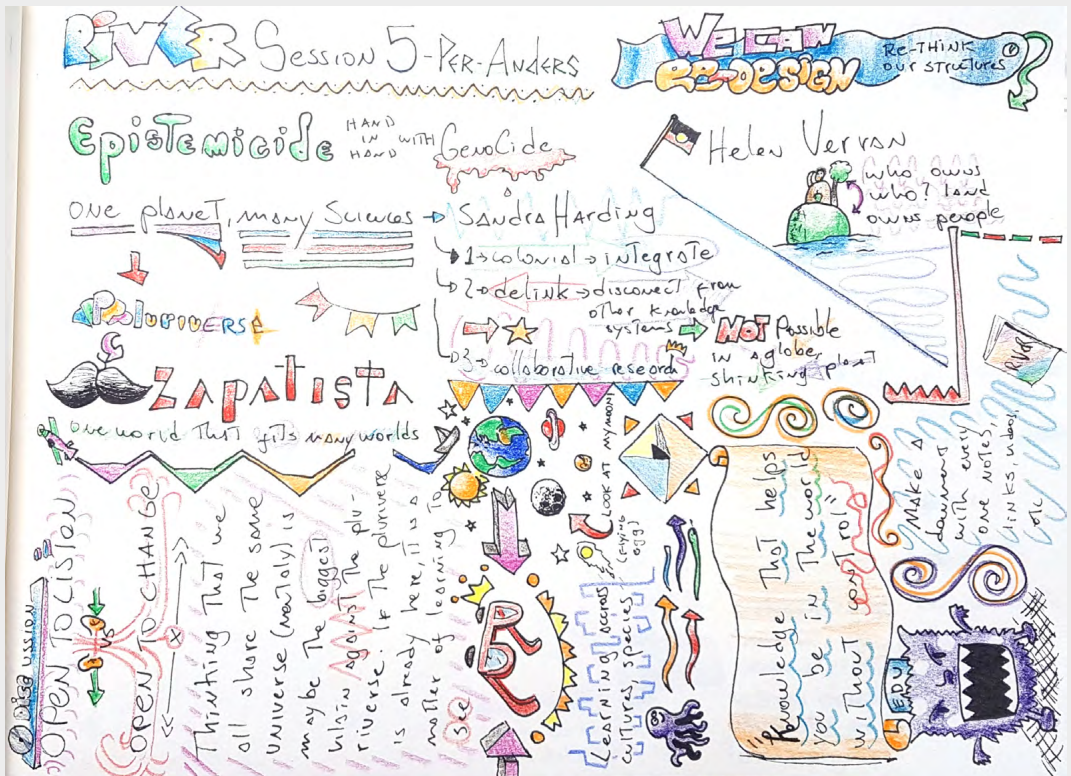 RiVER SESSION 5-PER-ANDERS
WE CAN
RE-DESIGN
RE-THINK
OUR STRUCTURES
EpisTEMiciDE HAND IN HAND WITH GENOCiDE
ONE planet, many Sciences
SANDRA HARDING
1→colonial→integrate
2→delink→disconect from
other knowledge
systems
NOT Possible
IN a globe,
shinking planet
3→collaborative research
Helen Verran
WHO OWNS
WHO? land
OWNS people
PLURIVERSE
ZAPATISTA
ONE WORLD THAT fits MANY WORLDS
DISCUSSION
OPEN TO LISTEN
VS
OPEN TO CHANGE
THINKING THAT WE
all share THE SAME
UNIVERSE (
maybe THE
AGAINST THE plu-
riverse. If THE pluriverse
is already here, IT IS a
matter of learning TO
SEE
LOOK AT MY MOON!
(FLYING
EGG)
Learning Across
cultures, species
"Knowledge That helps
you be in The world
without control"
RIVER
MAKE A
document
with every
one notes,
links, videos,
etc
EDU